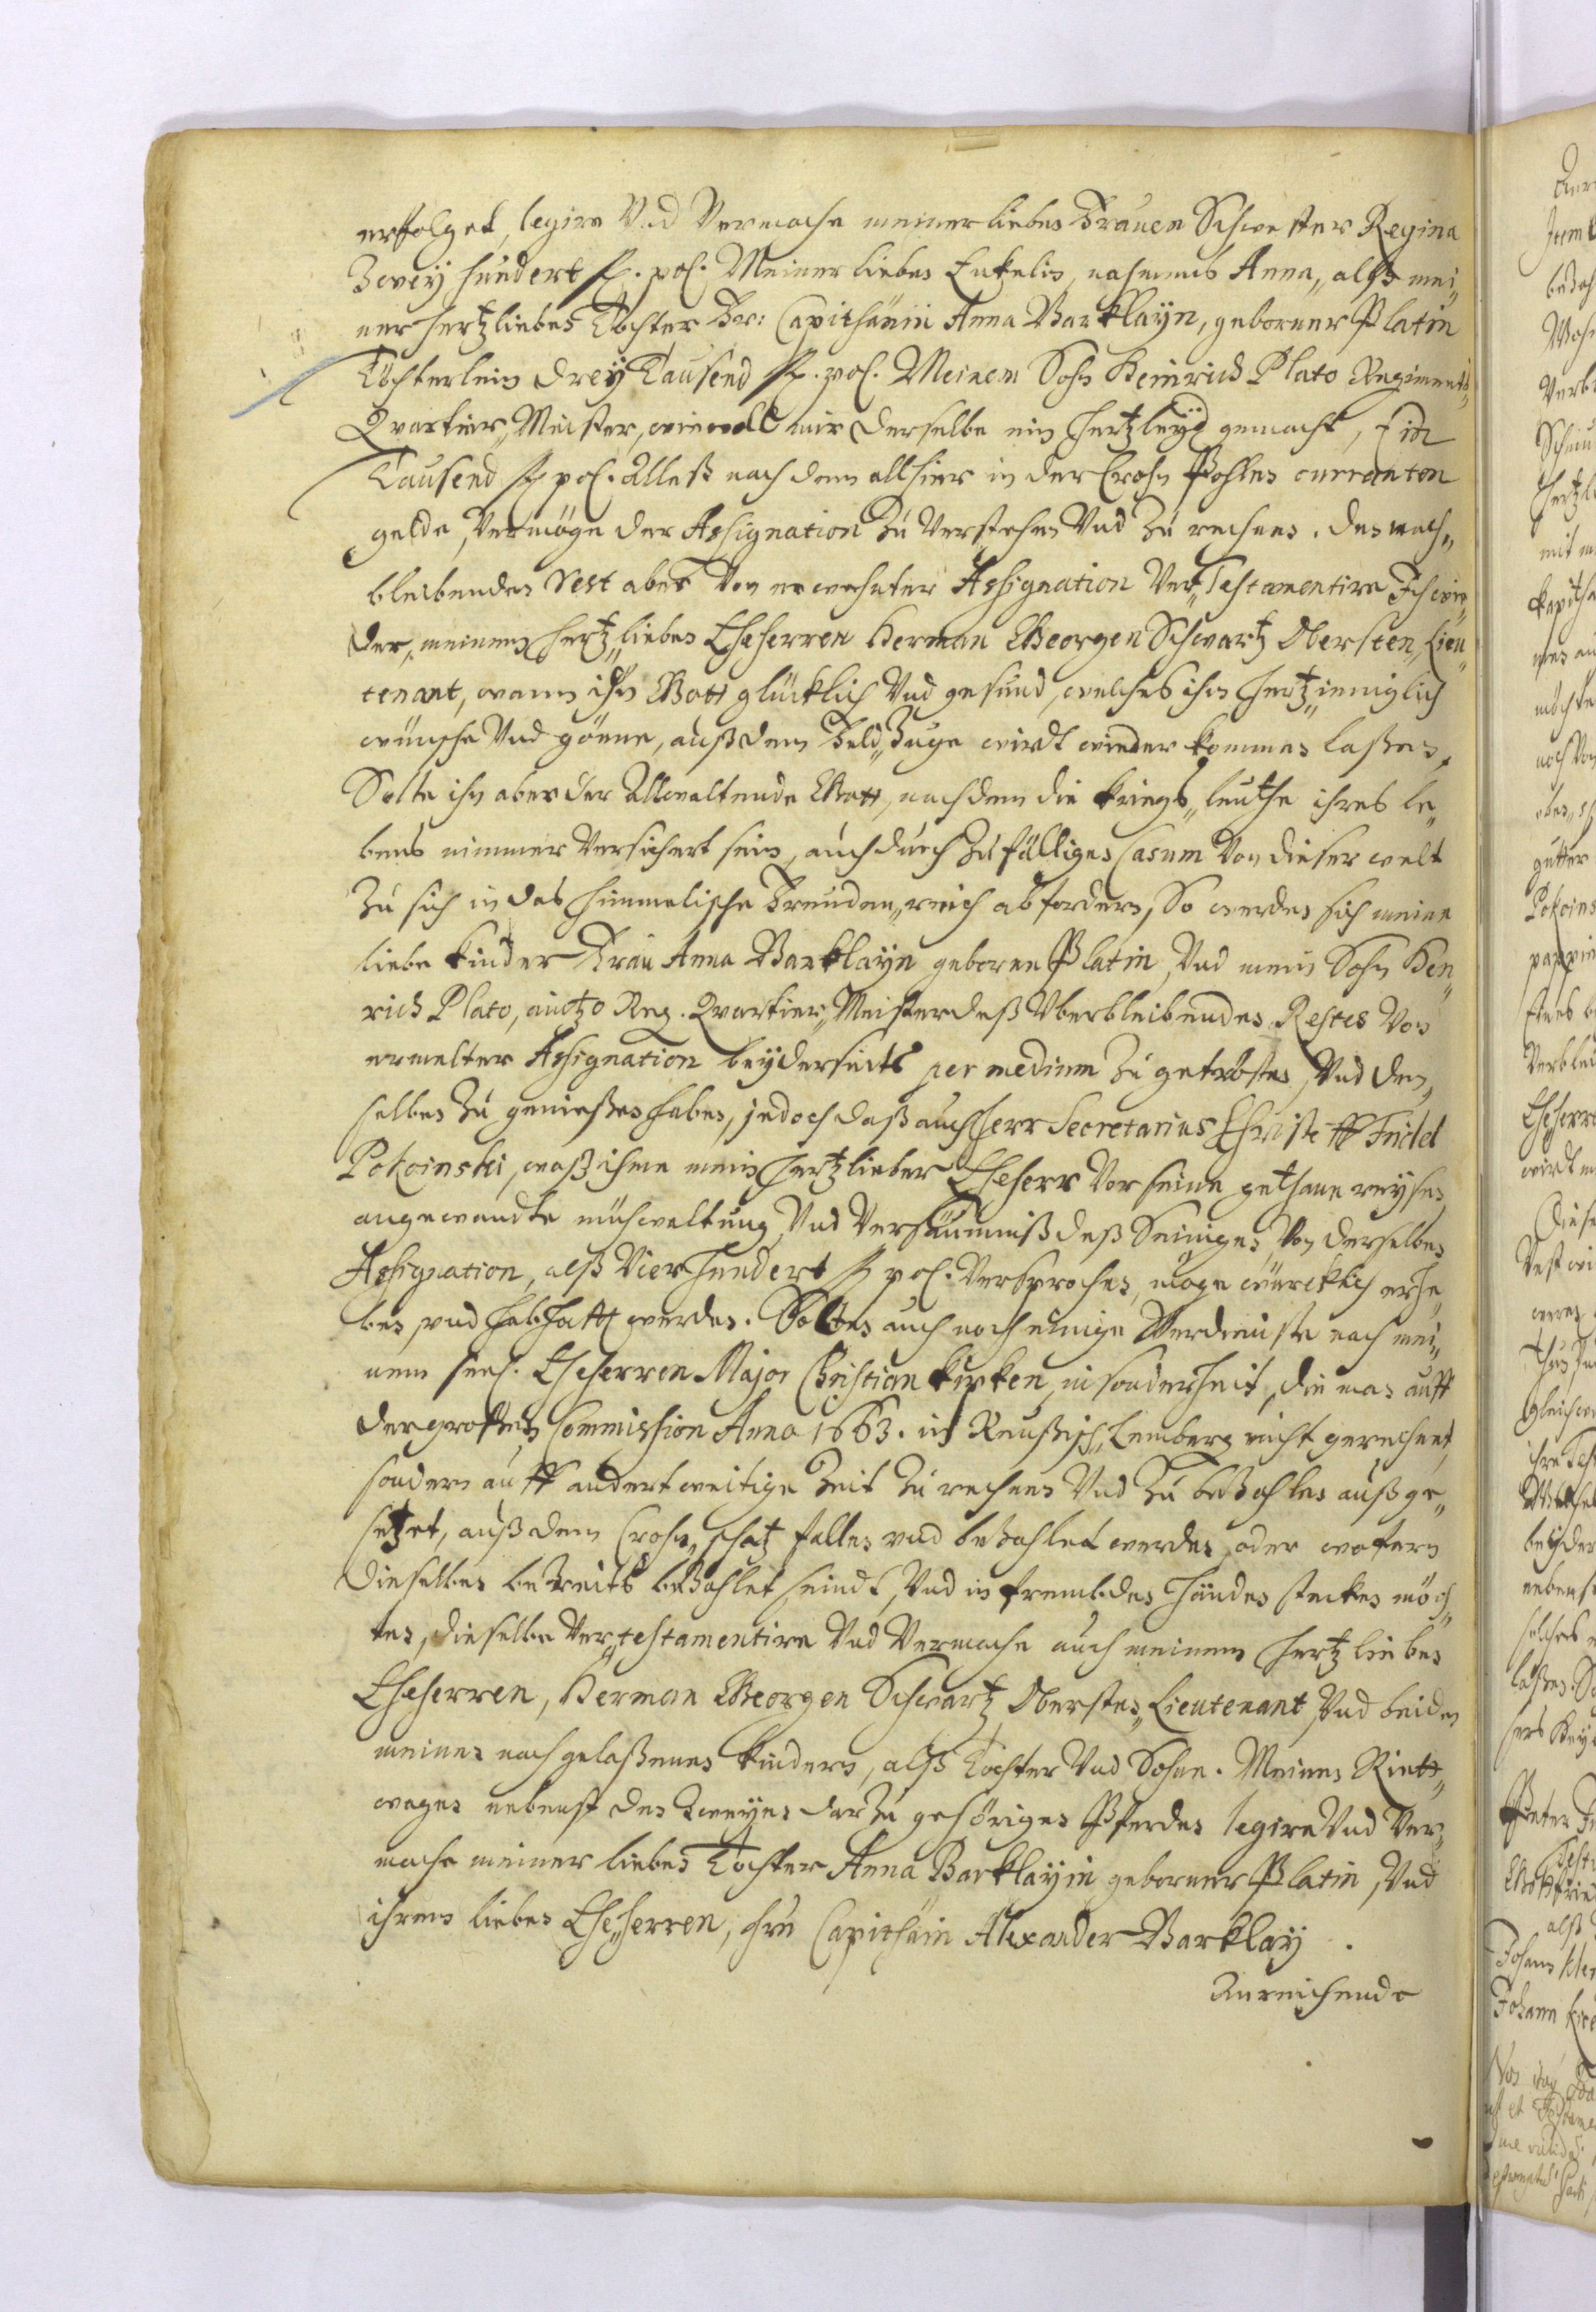 erfolget, legire Und Vermache meiner lieben Frauen Schwester Regina
Zwey hundert fl. pol. Meiner lieben Enkelin, nahmens Anna, alß mei„
ner hertzlieben Tochter Fr: Capithänin Anna Barklayn, geborner Platin
Töchterlein drey Tausend fl. pol. Meinem Sohn Heinrich Plato Regiments„
Quartier„Meister, wiewoll mir derselbe ein hertzleyd gemacht, Ein
Tausend fl pol. Alleß nach dem allhier in der Crohn Pohlen curranten
gelde, Vermöge der Assignation Zu Verstehen Und Zu rechnen. Den nach„
bleibenden Rest aber Von erwehnter Assignation Ver„Testamentire Ich wie„
der, meinem hertz„lieben Eheherren Herman Georgen Schwartz Obersten„Lieu„
tenant, wann ihn Gott glücklich Und gesund, welches ihm hertz„inniglich
wünsche Und gönne, auß dem Feld„Zuge wirdt wieder kommen laßen.
Solte ihn aber der Allwaltende Gott, nachdem die Kriegs„leuthe ihres le„
bens nimmer Versichert sein, auch durch Zufälligen Casum Von dieser welt
Zu sich in das himmelische Freuden„reich abfordern, So werden sich meine
liebe Kinder Frau Anna Barklayn geborne Platin, Und mein Sohn Hen„
rich Plato, Reg. Quartier„Meister deß Uberbleibenden Restes Von
ermelter Assignation beyderseits per medium Zu getrösten, Und den„
selben Zu genießen haben, jedoch daß auch Herr Secretarius Christoff Fridel
Pokoinski, waß ihme mein hertzlieber Eheherr Vor seine gethane reysen
angewandte mühwaltung, Und Versäumniß deß Seinigen, Von derselben
Assignation, alß Vier hundert fl pol. Versprochen, möge würcklich erhe„
ben und habhafft werden. Solten auch noch einige Verdienste nach mei„
nem seel. Eheherren Major Christian Kirken, insonderheit, die man auff
der großen Commission Anno 1663. in Reußisch„Lemberg nicht gerechnet,
sondern auff andertweitige Zeit Zu rechnen Und Zu beZahlen außge„
setzet, auß dem Crohn„schatz fallen und beZahlet werden, oder wofern
dieselben bereits beZahlet seindt, Und in frembden Händen stecken möch„
ten, dieselbe Ver„testamentire Und Vermache auch meinem Hertz lieben
Eheherren, Herman Georgen Schwartz Obersten„Lieutenant Und beiden
meinen nachgelaßenen Kindern, alß Tochter Und Sohne. Meinen
wagen nebenst den Zweyen darZu gehörigen Pferden legire Und Ver„
mache meiner lieben Tochter Anna Barklayin geborner Platin, Und
ihrem lieben Eheherren, Hrn Capithäin Alexander Barklay.
Anreichende